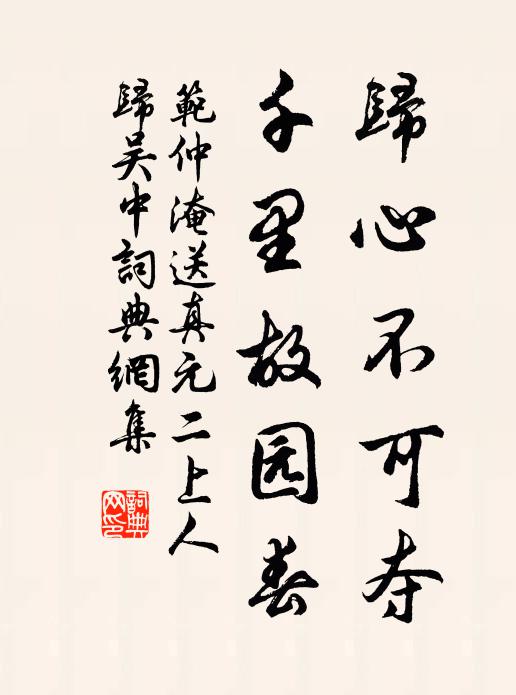 歸心不可夺
千里故园春
範仲淹送真元二上人
歸吴中詞典網集
詞典网印